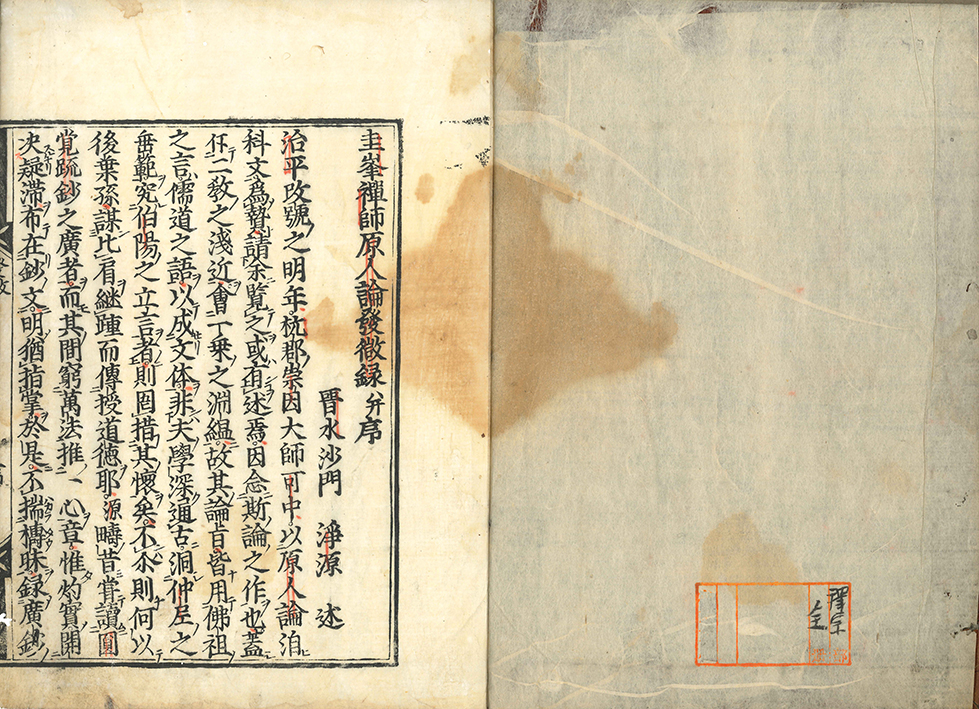 禪宗
全
圭峯禪師原人論發微録并序
晉水沙門 淨源 述
治平改號之明年杭郡崇因大師可中以原人論洎
科文爲贄請余覧之或有述焉因念斯論之作也蓋
任二教之淺近會一乗之淵緼故其論旨皆用佛祖
之言儒道之語以成文体非夫學深通古洞仲尼之
垂範究伯陽之立言者則罔措其懷矣不尒則何以
後葉孫謀比肩継踵而傳授道德耶源疇昔甞讀圓
覚䟽鈔之廣者而其間窮萬法推一心章惟灼實開
决疑滞布在鈔文明猶指掌於是不揣檮昧録廣鈔